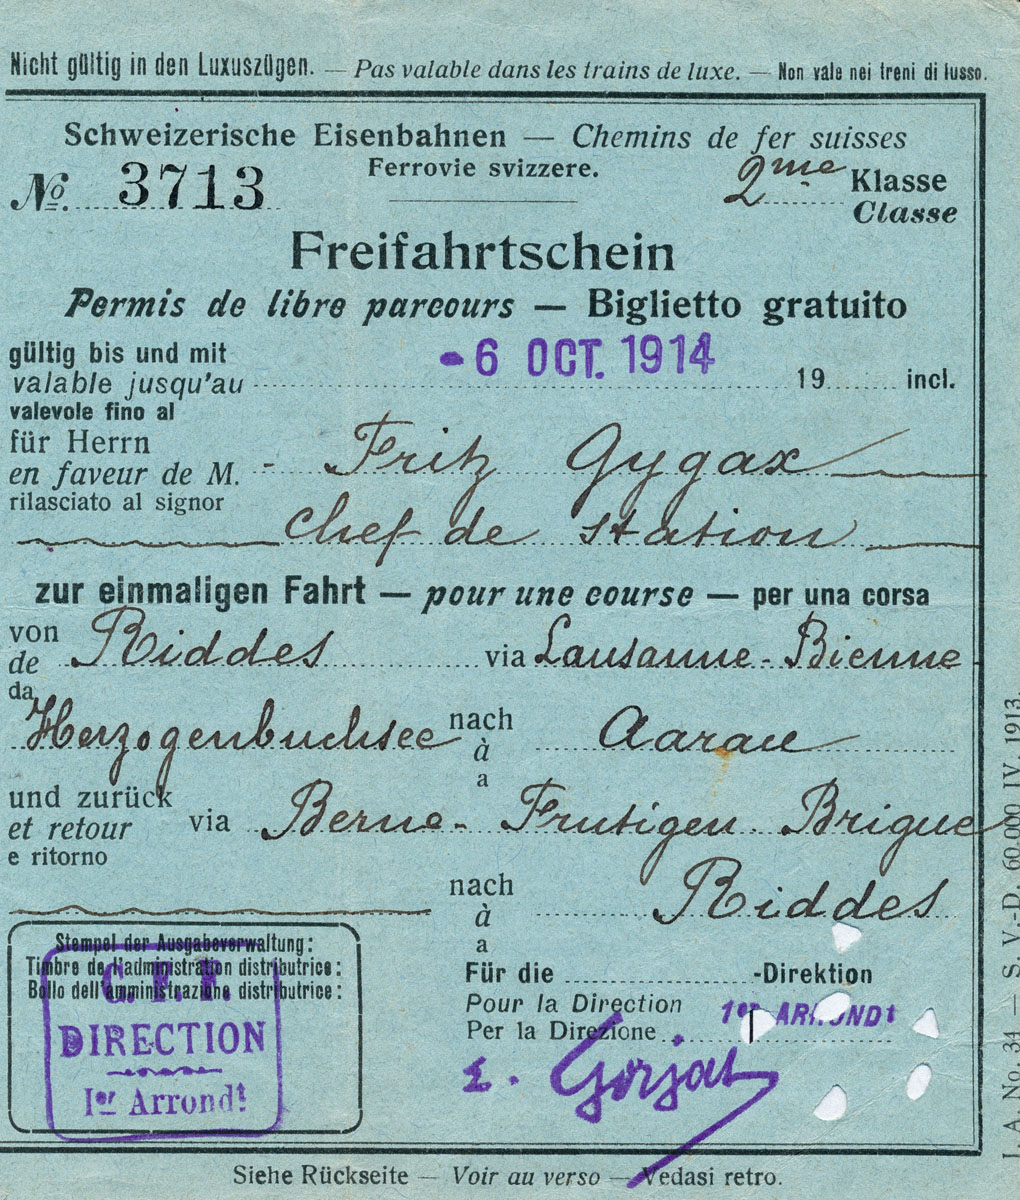 Nicht gültig in den Luxuszügen. — Pas valable dans les trains de luxe. — Non vale nei treni di lusso.
Schweizerische Eisenbahnen — Chemins de fer suisses
Ferrovie svizzere.
No. 3713
2me Klasse
Classe
Freifahrtschein
Permis de libre parcours — Biglietto gratuito
gültig bis und mit
valable jusqu'au
valevole fino al
-6 OCT. 1914
19 incl.
für Herrn
en faveur de M.
rilasciato al signor
Fritz Gygax
chef de station
zur einmaligen Fahrt — pour une course — per una corsa
von
de
da
Riddes via Lausanne - Bienne
Herzogenbuchsee
nach
à
a
Aarau
und zurück
et retour
e ritorno
via Berne - Frutigen - Brigue
nach
à
a
Riddes
Stempel der Ausgabeverwaltung:
Timbre de l'administration distributrice:
Bollo dell'amministrazione distributrice:
C. F. F.
DIRECTION
Ier Arrondt
Für die -Direktion
Pour la Direction
Per la Direzione
1er ARRONDt
E. Gorjat
Siehe Rückseite — Voir au verso — Vedasi retro.
I. A. No. 34 — S. V.-D. 60.000 IV. 1913.